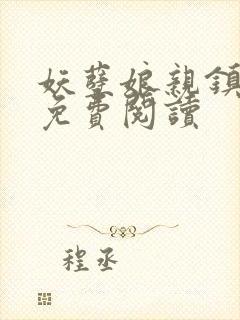 妖孽娘親鎮
免費閱讀
程丞